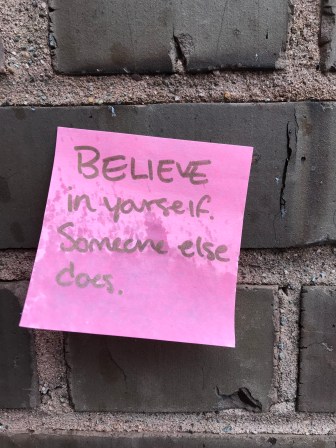 BELIEVE
in yourself.
Someone else
does.